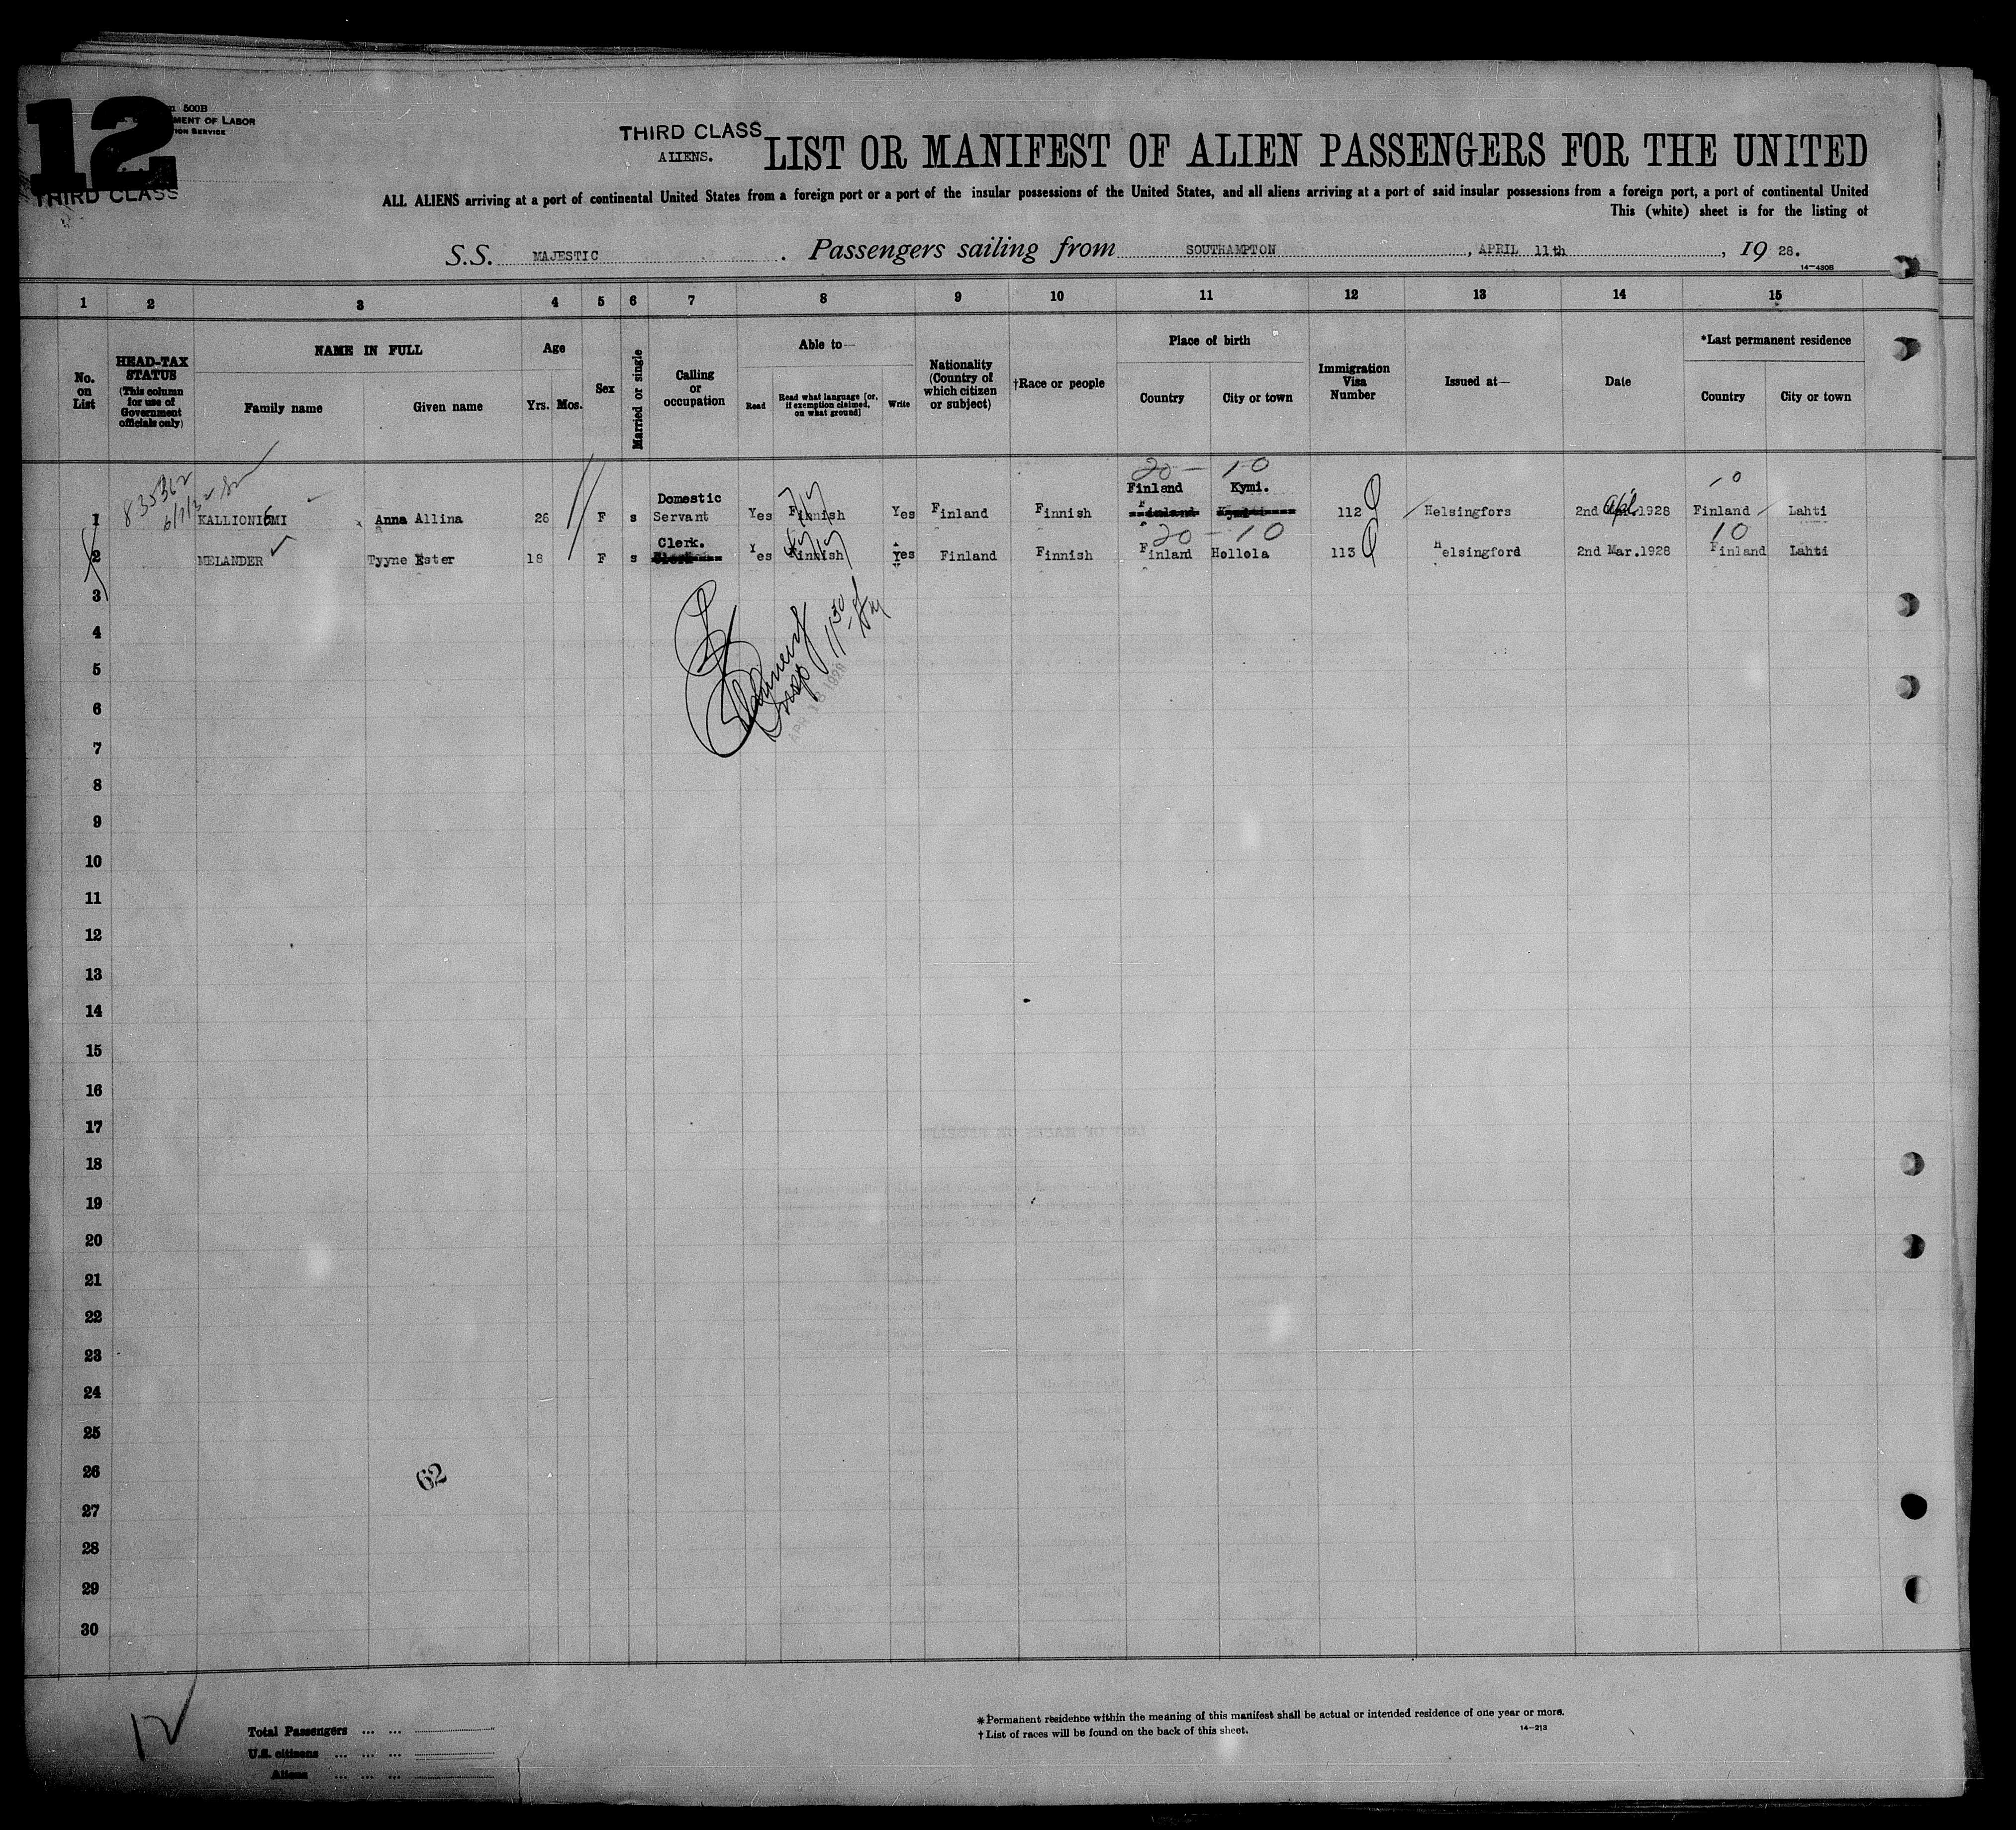 12
500B
MENT OF LABOR
TION SERVICE
THIRD CLASS
THIRD CLASS
ALIENS.
LIST OR MANIFEST OF ALIEN PASSENGERS FOR THE UNITED
ALL ALIENS arriving at a port of continental United States from a foreign port or a port of the insular possessions of the United States, and all aliens arriving at a port of said insular possessions from a foreign port, a port of continental United
This (white) sheet is for the listing of
S.S. MAJESTIC. Passengers sailing from SOUTHAMPTON, APRIL 11th, 1928.
14-430B
1 2 3 4 5 6 7 8 9 10 11 12 13 14 15
No. on List
HEAD-TAX STATUS (This column for use of Government officials only)
NAME IN FULL
Family name Given name
Age
Yrs. Mos.
Sex
Married or single
Calling or occupation
Able to—
Read Read what language [or, if exemption claimed, on what ground] Write
Nationality (Country of which citizen or subject)
†Race or people
Place of birth
Country City or town
Immigration Visa Number
Issued at—
Date
*Last permanent residence
Country City or town
835362
20 - 10
10
1 KALLIONIEMI Anna Allina 26 F s Domestic Servant Yes Finnish Yes Finland Finnish Finland Kymi. 112 Helsingfors 2nd Apl.1928 Finland Lahti
20 - 10
10
2 MELANDER Tyyne Ester 18 F s Clerk. Yes Finnish Yes Finland Finnish Finland Hollola 113 Helsingford 2nd Mar.1928 Finland Lahti
3
4
5
6
7
8
9
10
11
12
13
14
15
16
17
18
19
20
21
22
23
24
25
26
27
28
29
30
11 30
APR 18 1928
62
12
Total Passengers ... ...
U.S. citizens ... ... ...
Aliens ... ... ...
*Permanent residence within the meaning of this manifest shall be actual or intended residence of one year or more.
†List of races will be found on the back of this sheet.
14-213